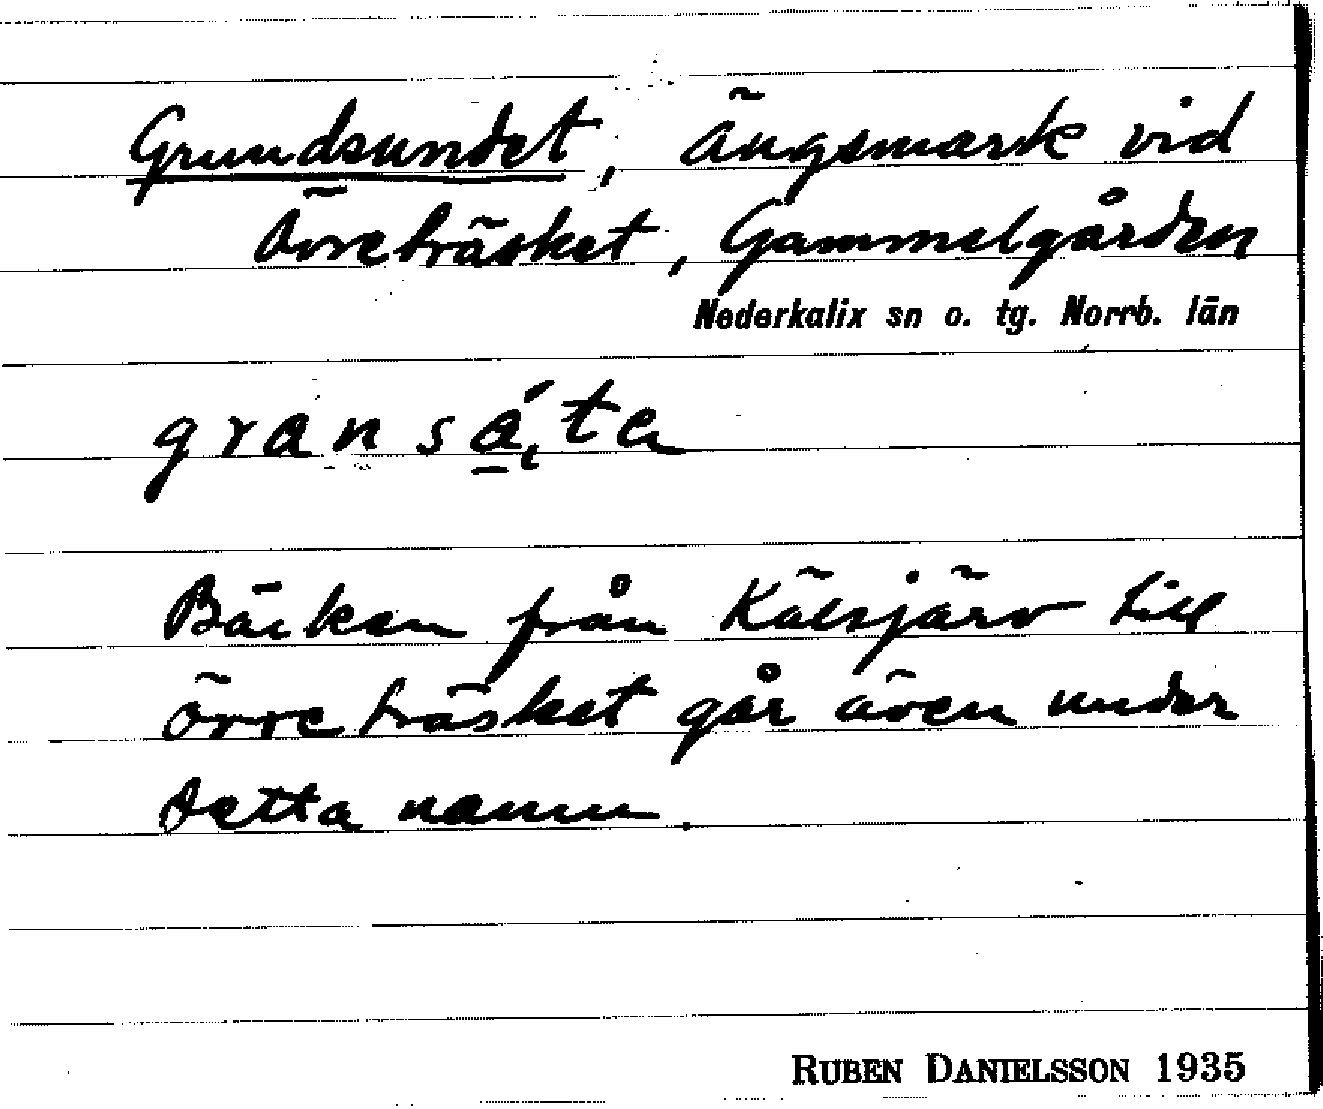 Grundsundet, ängsmark vid
Örreträsket, Gammelgården
Nederkalix sn o. tg. Norrb. län
gransá̱ta
Bäcken från Kälsjärv till
örreträsket går även under
detta namn.
RUBEN DANIELSSON 1935